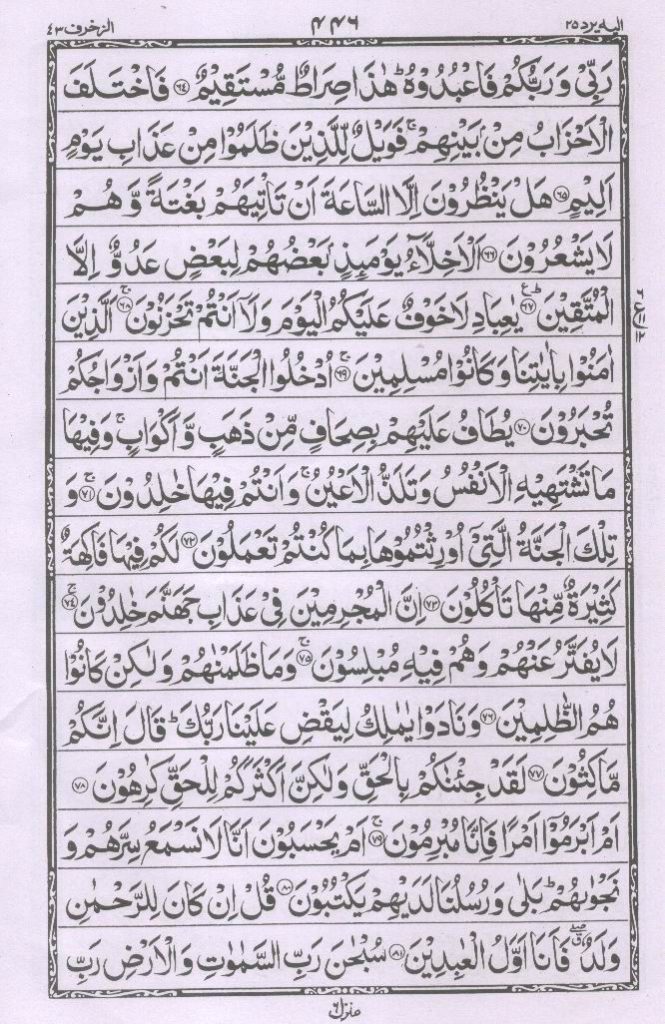 الزخرف ٤٣ ٤٤٦ الیه یرد ٢٥
رَبِّیْ وَرَبُّكُمْ فَاعْبُدُوْهُ ؕ هٰذَا صِرَاطٌ مُّسْتَقِیْمٌ ﴿٦٤﴾ فَاخْتَلَفَ
الْاَحْزَابُ مِنْۢ بَیْنِهِمْ ۚ فَوَیْلٌ لِّلَّذِیْنَ ظَلَمُوْا مِنْ عَذَابِ یَوْمٍ
اَلِیْمٍ ﴿٦٥﴾ هَلْ یَنْظُرُوْنَ اِلَّا السَّاعَةَ اَنْ تَاْتِیَهُمْ بَغْتَةً وَّهُمْ
لَا یَشْعُرُوْنَ ﴿٦٦﴾ اَلْاَخِلَّآءُ یَوْمَىِٕذٍۭ بَعْضُهُمْ لِبَعْضٍ عَدُوٌّ اِلَّا
الْمُتَّقِیْنَ ﴿٦٧﴾ یٰعِبَادِ لَا خَوْفٌ عَلَیْكُمُ الْیَوْمَ وَلَاۤ اَنْتُمْ تَحْزَنُوْنَ ۚ ﴿٦٨﴾ اَلَّذِیْنَ
اٰمَنُوْا بِاٰیٰتِنَا وَكَانُوْا مُسْلِمِیْنَ ۚ ﴿٦٩﴾ اُدْخُلُوا الْجَنَّةَ اَنْتُمْ وَاَزْوَاجُكُمْ
تُحْبَرُوْنَ ﴿٧٠﴾ یُطَافُ عَلَیْهِمْ بِصِحَافٍ مِّنْ ذَهَبٍ وَّاَكْوَابٍ ۚ وَفِیْهَا
مَا تَشْتَهِیْهِ الْاَنْفُسُ وَتَلَذُّ الْاَعْیُنُ ۚ وَاَنْتُمْ فِیْهَا خٰلِدُوْنَ ۚ ﴿٧١﴾ وَ
تِلْكَ الْجَنَّةُ الَّتِیْۤ اُوْرِثْتُمُوْهَا بِمَا كُنْتُمْ تَعْمَلُوْنَ ﴿٧٢﴾ لَكُمْ فِیْهَا فَاكِهَةٌ
كَثِیْرَةٌ مِّنْهَا تَاْكُلُوْنَ ﴿٧٣﴾ اِنَّ الْمُجْرِمِیْنَ فِیْ عَذَابِ جَهَنَّمَ خٰلِدُوْنَ ۚ ﴿٧٤﴾
لَا یُفَتَّرُ عَنْهُمْ وَهُمْ فِیْهِ مُبْلِسُوْنَ ۚ ﴿٧٥﴾ وَمَا ظَلَمْنٰهُمْ وَلٰكِنْ كَانُوْا
هُمُ الظّٰلِمِیْنَ ﴿٧٦﴾ وَنَادَوْا یٰمٰلِكُ لِیَقْضِ عَلَیْنَا رَبُّكَ ؕ قَالَ اِنَّكُمْ
مّٰكِثُوْنَ ﴿٧٧﴾ لَقَدْ جِئْنٰكُمْ بِالْحَقِّ وَلٰكِنَّ اَكْثَرَكُمْ لِلْحَقِّ كٰرِهُوْنَ ﴿٧٨﴾
اَمْ اَبْرَمُوْۤا اَمْرًا فَاِنَّا مُبْرِمُوْنَ ۚ ﴿٧٩﴾ اَمْ یَحْسَبُوْنَ اَنَّا لَا نَسْمَعُ سِرَّهُمْ وَ
نَجْوٰىهُمْ ؕ بَلٰی وَرُسُلُنَا لَدَیْهِمْ یَكْتُبُوْنَ ﴿٨٠﴾ قُلْ اِنْ كَانَ لِلرَّحْمٰنِ
وَلَدٌ ۖۗ فَاَنَا اَوَّلُ الْعٰبِدِیْنَ ﴿٨١﴾ سُبْحٰنَ رَبِّ السَّمٰوٰتِ وَالْاَرْضِ رَبِّ
منزل ٦